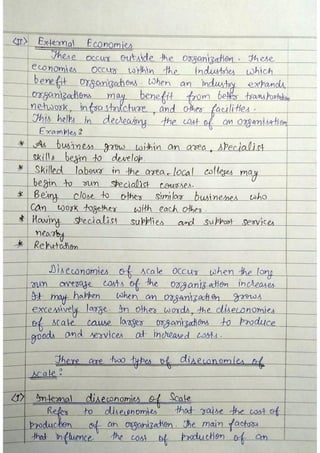 (II) External Economies
These occur outside the organization. These
economies occur within the industries which
benefit organizations. When an industry expands
organizations may benefit from better transportation
network, infrastructure, and other facilities.
This helps in decreasing the cost of an organisation
Examples:
* As business grow within an area, specialist
skills begin to develop.
* Skilled labour in the area, local colleges may
begin to run specialist courses.
* Being close to other similar businesses who
can work together with each other
* Having specialist supplies and support services
nearby
* Reputation
Diseconomies of scale occur when the long
run average costs of the organization increases
It may happen when an organization grows
excessively large. In other words, the diseconomies
of scale cause larger organizations to produce
goods and services at increased costs.
There are two types of diseconomies of
scale:
(I) Internal diseconomies of Scale
Refer to diseconomies that raise the cost of
production of an organization. The main factors
that influence the cost of production of an